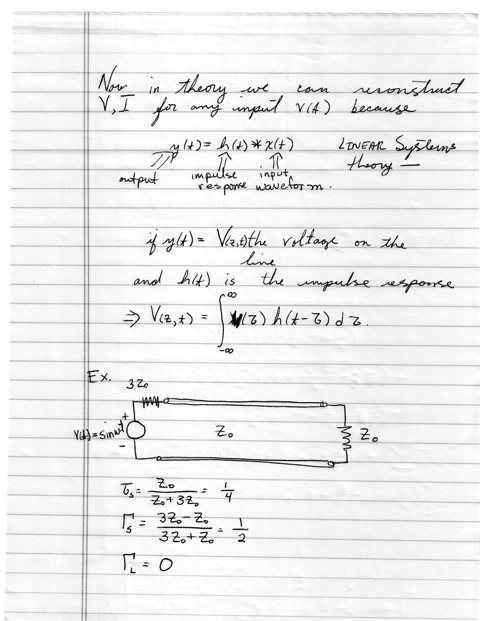 Now in theory we can reconstruct
V, I for any input v(t) because
y(t) = h(t) * x(t) LINEAR Systems
theory —
output impulse input
response waveform.
if y(t) = V(z,t) the voltage on the
line
and h(t) is the impulse response
⇒ V(z,t) = ∫_{-∞}^{∞} v(τ) h(t-τ) dτ.
Ex.
3Z₀
+
V(t) = sin ωt Z₀ Z₀
-
τ_s = Z₀ / (Z₀ + 3Z₀) = 1/4
Γ_s = (3Z₀ - Z₀) / (3Z₀ + Z₀) = 1/2
Γ_L = 0